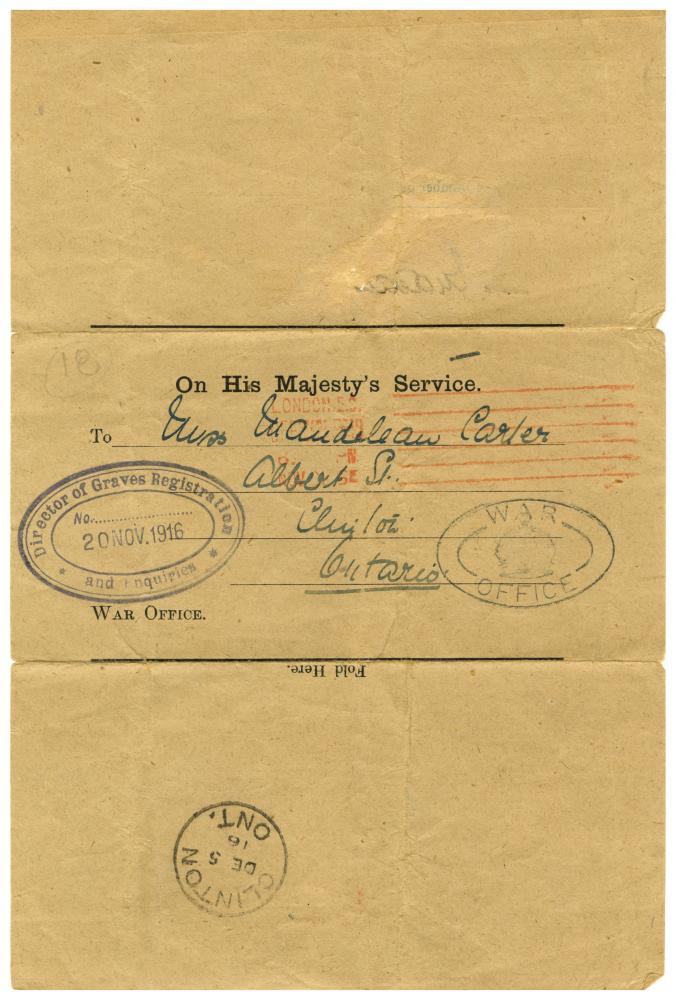 On His Majesty's Service.
LONDON.
To Miss Maudelean Carter
Albert St.
Clinton
Ontario.
Director of Graves Registration
No.
20 NOV. 1916
and Enquiries
WAR
OFFICE
WAR OFFICE.
Fold Here.
CLINTON
DE 5
16
ONT.